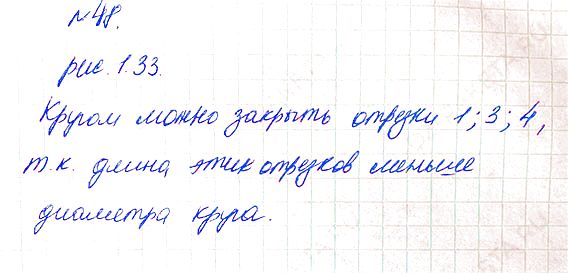 №48.
рис. 1.33.
Кругом можно закрыть отрезки 1; 3; 4,
т.к. длина этих отрезков меньше
диаметра круга.